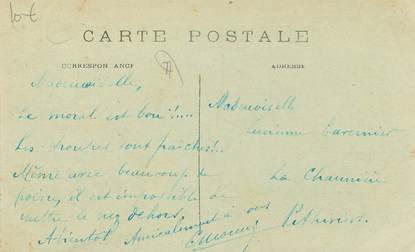 lot
CARTE POSTALE
CORRESPONDANCE
ADRESSE
Mademoiselle,
Le moral est bon !....
Les troupes sont fraîches !..
Même avec beaucoup de
poivre, il est impossible de
mettre le nez dehors,
A bientôt Amicalement à
Mademoiselle
Tavernier
La Chaumière
Pithiviers